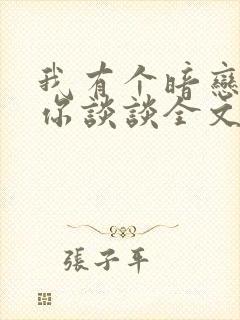 我有个暗戀
你談談全文
張子平